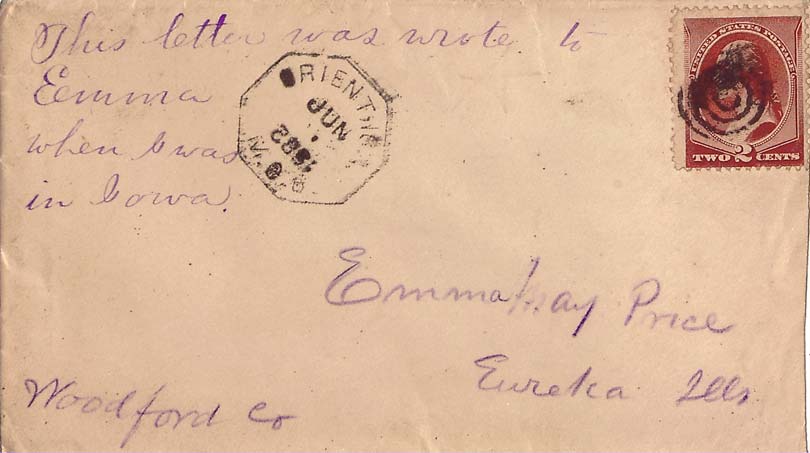 This letter was wrote to
Emma
when I was
in Iowa.
ORIENT
JUN
188
UNITED STATES POSTAGE
TWO 2 CENTS
Emma May Price
Eureka Ills
Woodford Co